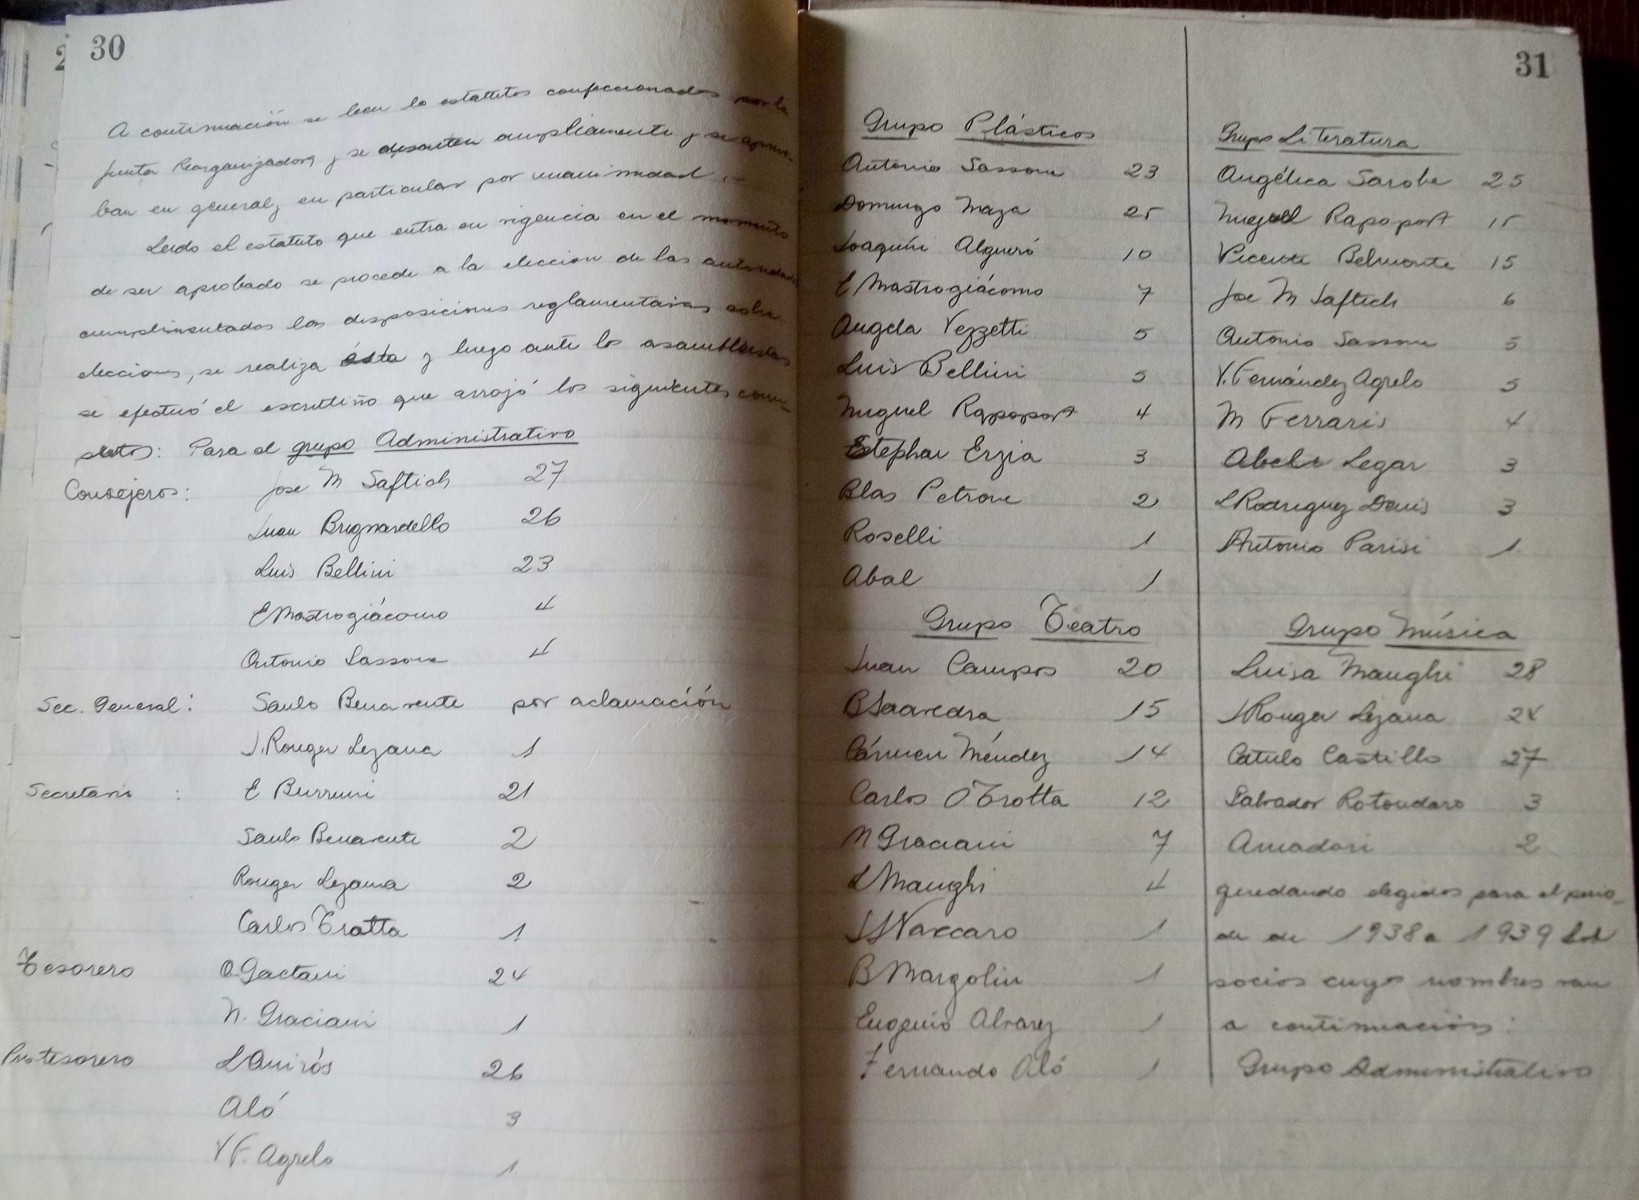 30
A continuación se leen lo estatutos confeccionados por la
Junta Reorganizadora y se discuten ampliamente y se aprue-
ban en general y en particular por unanimidad.-
Leido el estatuto que entra en vigencia en el momento
de ser aprobado se procede a la eleccion de las autoridades
cumplimentadas las disposiciones reglamentarias sobre
elecciones, se realiza ésta y luego ante los asambleistas
se efectuó el escrutiño que arrojó los siguientes
Para el grupo Administrativo
Consejeros: Jose M Saftich 27
Juan Brignardello 26
Luis Bellini 23
E Mastrogiácomo 4
Antonio Sassone 4
Sec. General: Saulo Benavente por aclamación
J. Rouger Lezama 1
Secretario : E Burruni 21
Saulo Benavente 2
Rouger Lezama 2
Carlos Trotta 1
Tesorero O Gaetani 24
N. Graciani 1
Protesorero L Quirós 26
Aló 3
V F. Agrelo 1
31
Grupo Plásticos
Antonio Sassone 23
Domingo Maza 25
Joaquín Algueró 10
E Mastrogiácomo 7
Angela Vezzetti 5
Luis Bellini 5
Miguel Rapoport 4
Estephan Erzia 3
Blas Petrone 2
Roselli 1
Abal 1
Grupo Teatro
Juan Campos 20
B Saavedra 15
Cármen Méndez 14
Carlos O Trotta 12
N Graciani 7
L Manghi 4
J J Vaccaro 1
B Margolin 1
Eugenio Alvarez 1
Fernando Aló 1
Grupo Literatura
Angélica Sarobe 25
Miguel Rapoport 15
Vicente Belmonte 15
Jose M Saftich 6
Antonio Sassone 5
V. Fernández Agrelo 5
M Ferraris 4
Abel Legar 3
L Rodriguez Denis 3
Antonio Parisi 1
Grupo Música
Luisa Manghi 28
J Rouger Lezama 28
Catulo Castillo 27
Salvador Rotondaro 3
Amadori 2
quedando elegidos para el perio-
do de 1938 a 1939 los
socios cuyos nombres van
a continuación:
Grupo Administrativo